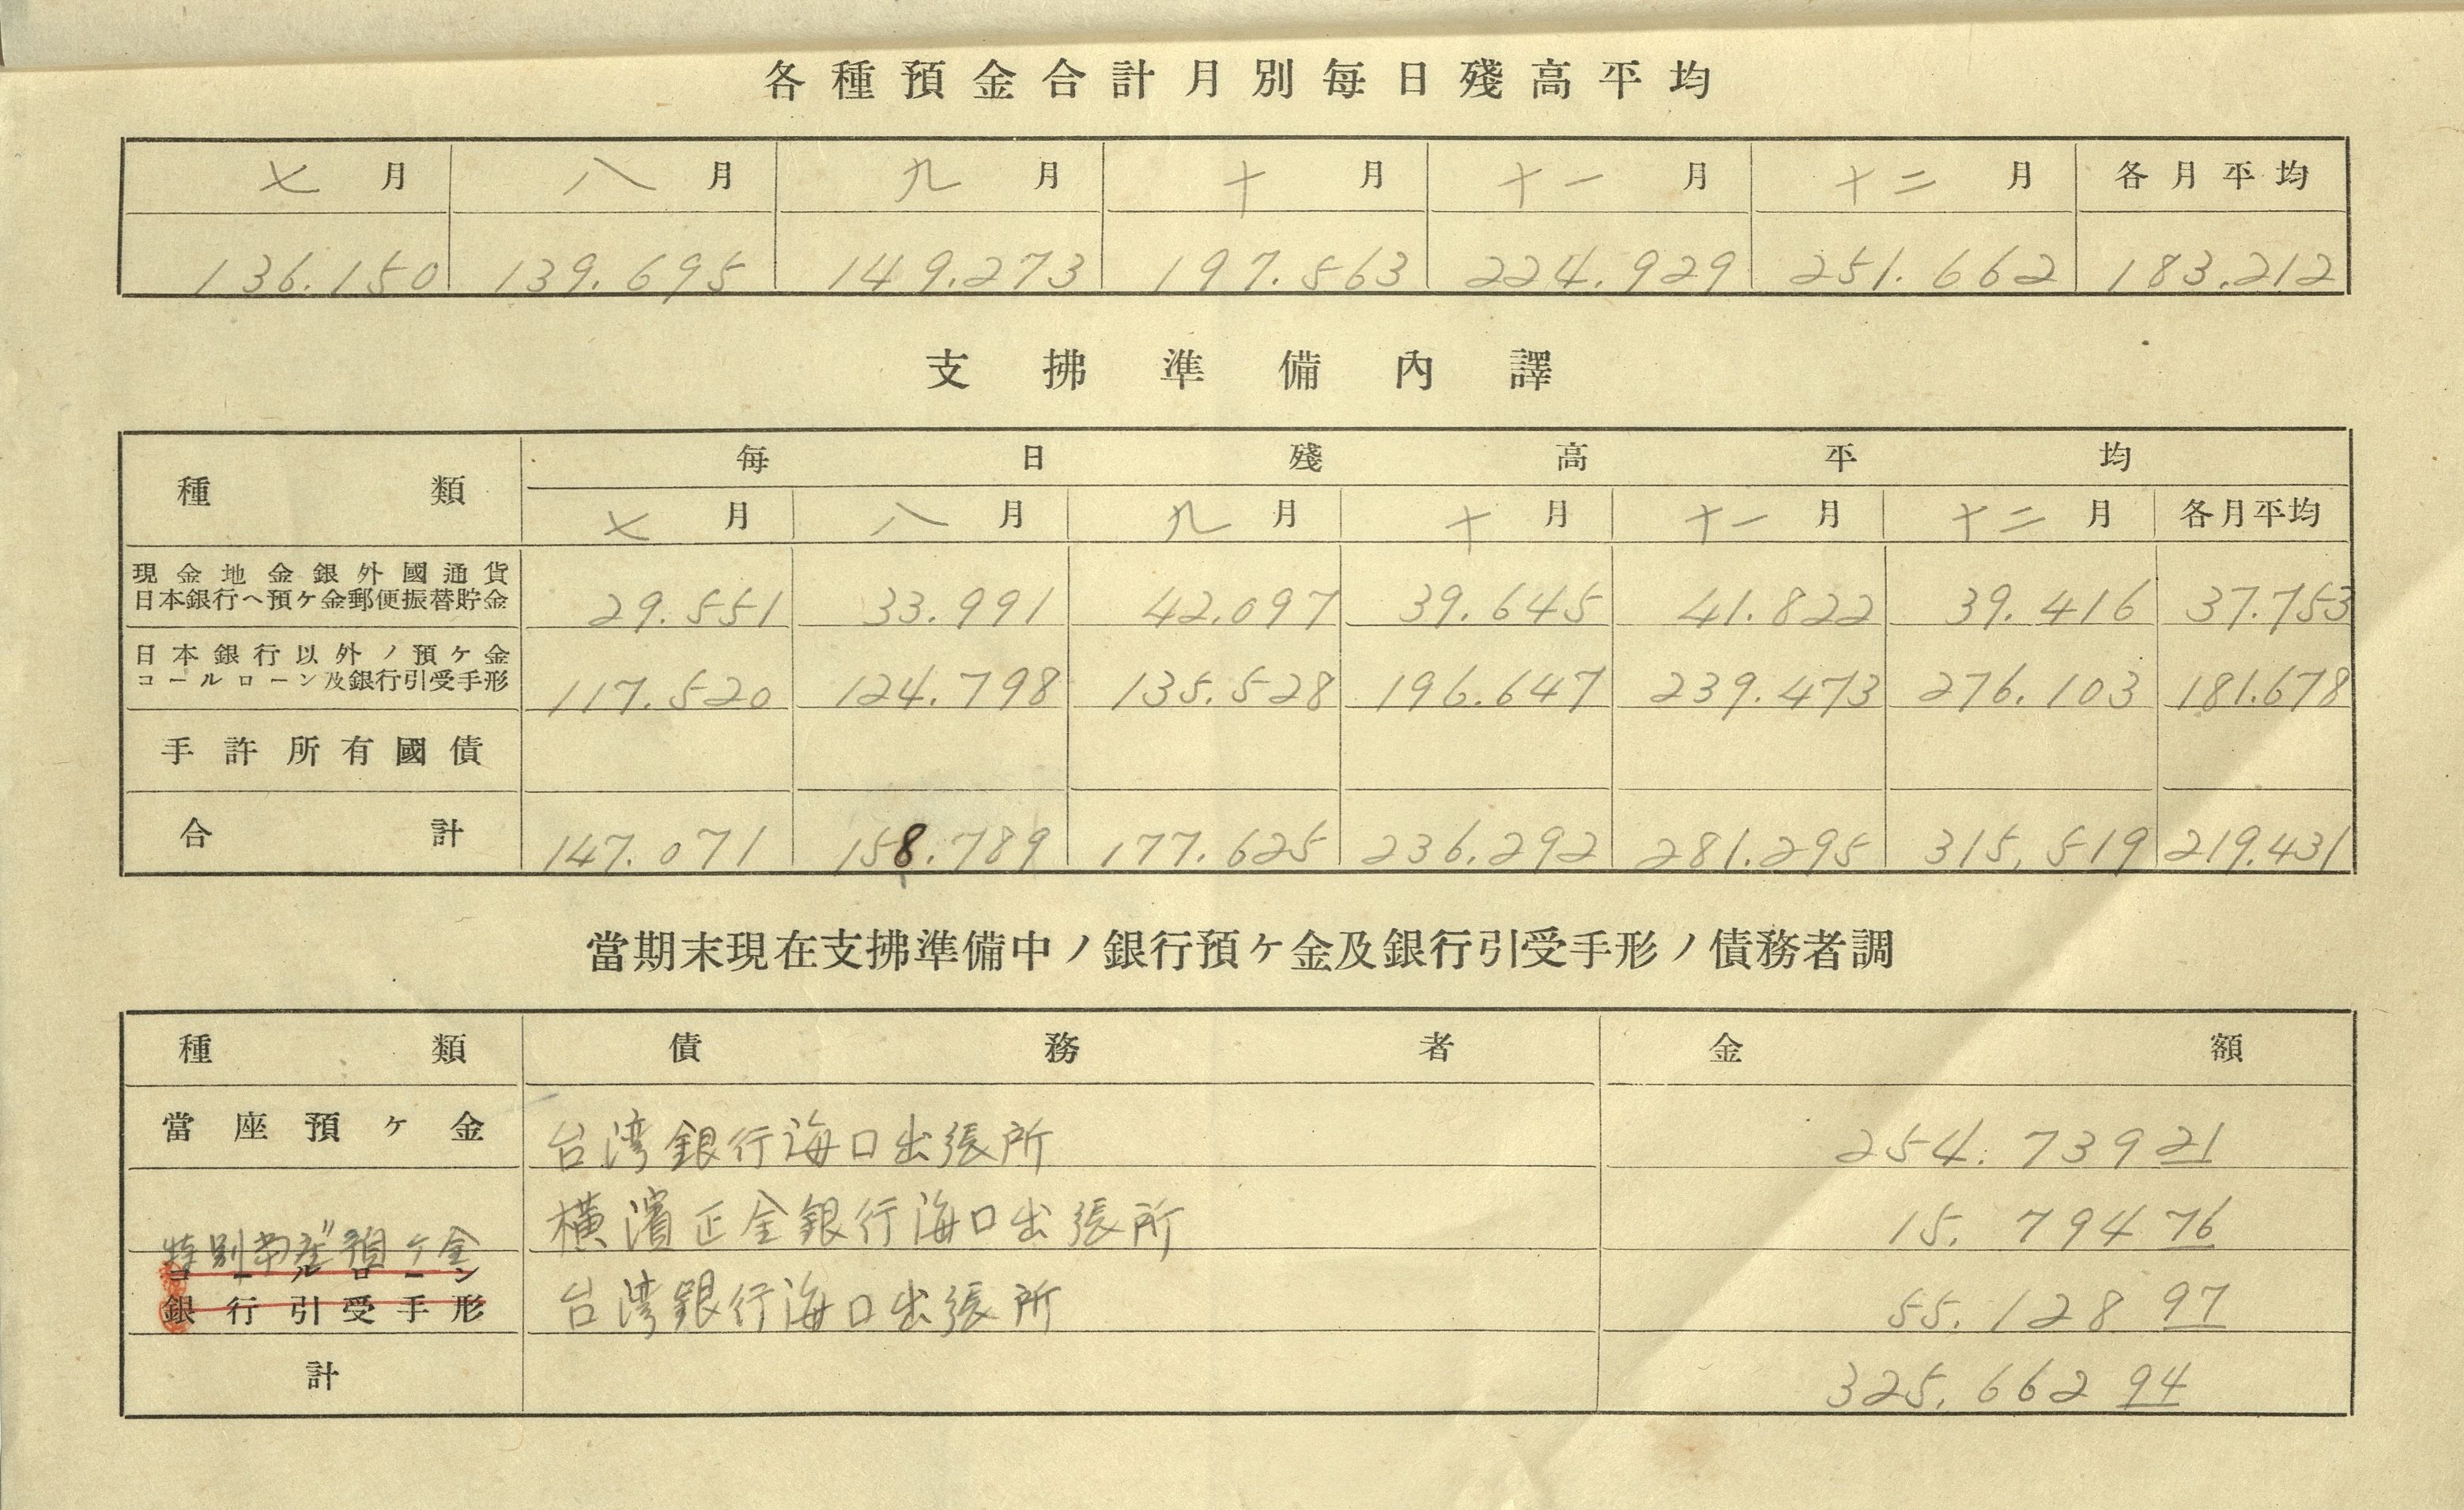 各種預金合計月別每日殘高平均
七月 八月 九月 十月 十一月 十二月 各月平均
136.150 139.695 149.273 197.563 224.929 251.662 183.212
支拂準備內譯
種類 每日殘高平均
七月 八月 九月 十月 十一月 十二月 各月平均
現金地金銀外國通貨
日本銀行ヘ預ケ金郵便振替貯金 29.551 33.991 42.097 39.645 41.822 39.416 37.753
日本銀行以外ノ預ケ金
コールローン及銀行引受手形 117.520 124.798 135.528 196.647 239.473 276.103 181.678
手許所有國債
合計 147.071 158.789 177.625 236.292 281.295 315.519 219.431
當期末現在支拂準備中ノ銀行預ケ金及銀行引受手形ノ債務者調
種類 債務者 金額
當座預ケ金 台湾銀行海口出張所 254.739 21
〃 橫濱正金銀行海口出張所 15.794 76
特別当座預ケ金
コールローン
銀行引受手形 台湾銀行海口出張所 55.128 97
計 325.662 94